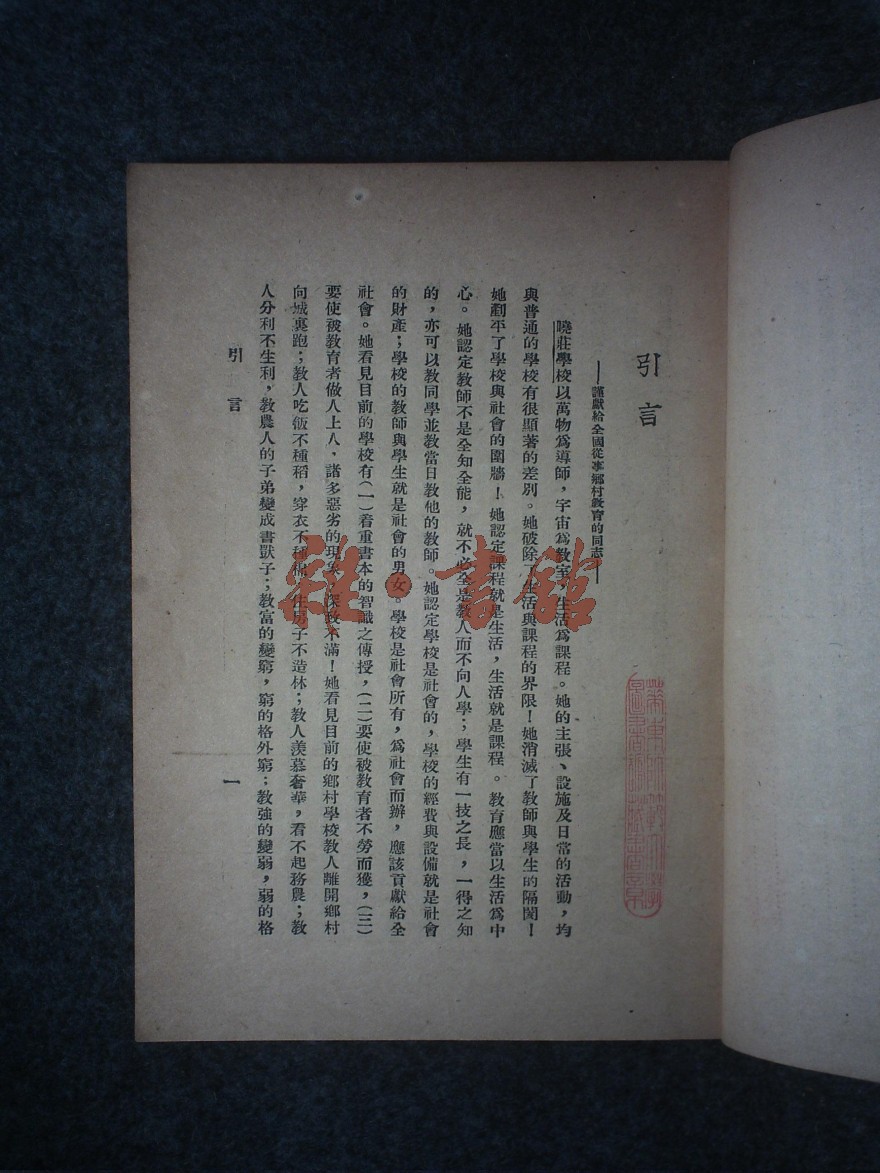 引言
——謹獻給全國從事鄉村教育的同志——
曉莊學校以萬物爲導師，宇宙爲教室，生活爲課程。她的主張、設施及日常的活動，均
與普通的學校有很顯著的差別。她破除了生活與課程的界限！她消滅了教師與學生的隔閡！
她剷平了學校與社會的圍牆！她認定課程就是生活，生活就是課程。教育應當以生活爲中
心。她認定教師不是全知全能，就不必全是教人而不向人學；學生有一技之長，一得之知
的，亦可以教同學並教當日教他的教師。她認定學校是社會的，學校的經費與設備就是社會
的財產；學校的教師與學生就是社會的男女。學校是社會所有，爲社會而辦，應該貢獻給全
社會。她看見目前的學校有(一)着重書本的智識之傳授，(二)要使被教育者不勞而獲，(三)
要使被教育者做人上人，諸多惡劣的現象，深致不滿！她看見目前的鄉村學校教人離開鄉村
向城裏跑；教人吃飯不種稻，穿衣不種棉，住房子不造林；教人羨慕奢華，看不起務農；教
人分利不生利，教農人的子弟變成書獃子；教富的變窮，窮的格外窮；教強的變弱，弱的格
引言
一
雜·書館